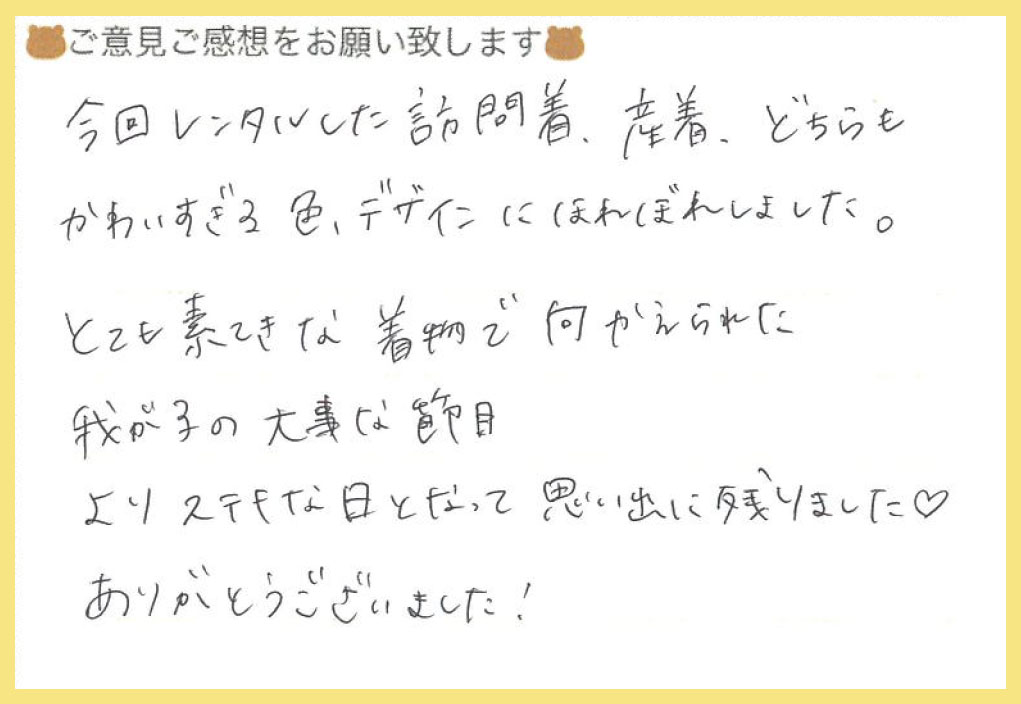 ご意見ご感想をお願い致します
今回レンタルした訪問着、産着、どちらも
かわいすぎる色、デザインにほれぼれしました。
とても素てきな着物で向かえられた
我が子の大事な節目
よりステキな日となって思い出に残りました♡
ありがとうございました!